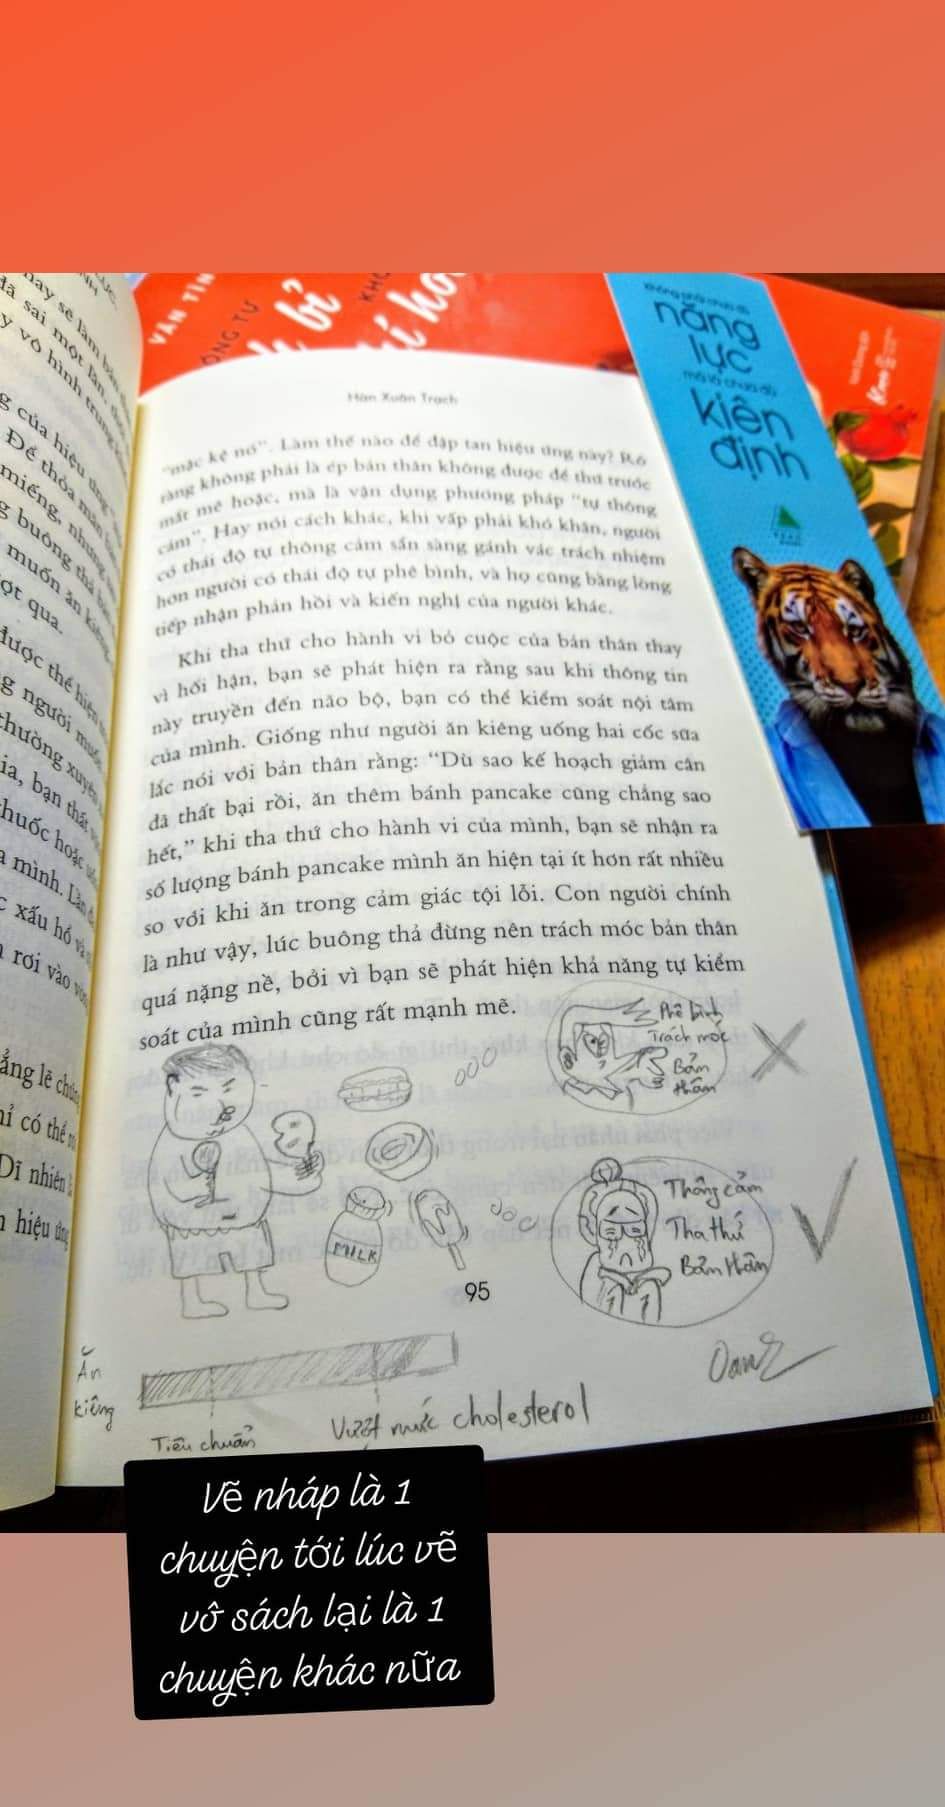 VĂN TÌN
ÔNG TƯ
bỉ
KHÔ
năng
lực
mà là chưa đủ
kiên
định
Hàn Xuân Trạch
"mặc kệ nó". Làm thế nào để đập tan hiệu ứng này? Rõ
ràng không phải là ép bản thân không được để thứ trước
mắt mê hoặc, mà là vận dụng phương pháp "tự thông
cảm". Hay nói cách khác, khi vấp phải khó khăn, người
có thái độ tự thông cảm sẵn sàng gánh vác trách nhiệm
hơn người có thái độ tự phê bình, và họ cũng bằng lòng
tiếp nhận phản hồi và kiến nghị của người khác.
Khi tha thứ cho hành vi bỏ cuộc của bản thân thay
vì hối hận, bạn sẽ phát hiện ra rằng sau khi thông tin
này truyền đến não bộ, bạn có thể kiểm soát nội tâm
của mình. Giống như người ăn kiêng uống hai cốc sữa
lắc nói với bản thân rằng: "Dù sao kế hoạch giảm cân
đã thất bại rồi, ăn thêm bánh pancake cũng chẳng sao
hết," khi tha thứ cho hành vi của mình, bạn sẽ nhận ra
số lượng bánh pancake mình ăn hiện tại ít hơn rất nhiều
so với khi ăn trong cảm giác tội lỗi. Con người chính
là như vậy, lúc buông thả đừng nên trách móc bản thân
quá nặng nề, bởi vì bạn sẽ phát hiện khả năng tự kiểm
soát của mình cũng rất mạnh mẽ.
Phê bình
Trách móc
Bản
thân
Thông cảm
Tha thứ
Bản thân
MILK
95
Ăn
kiêng
Tiêu chuẩn
Vượt mức cholesterol
Vẽ nháp là 1
chuyện tới lúc vẽ
vô sách lại là 1
chuyện khác nữa